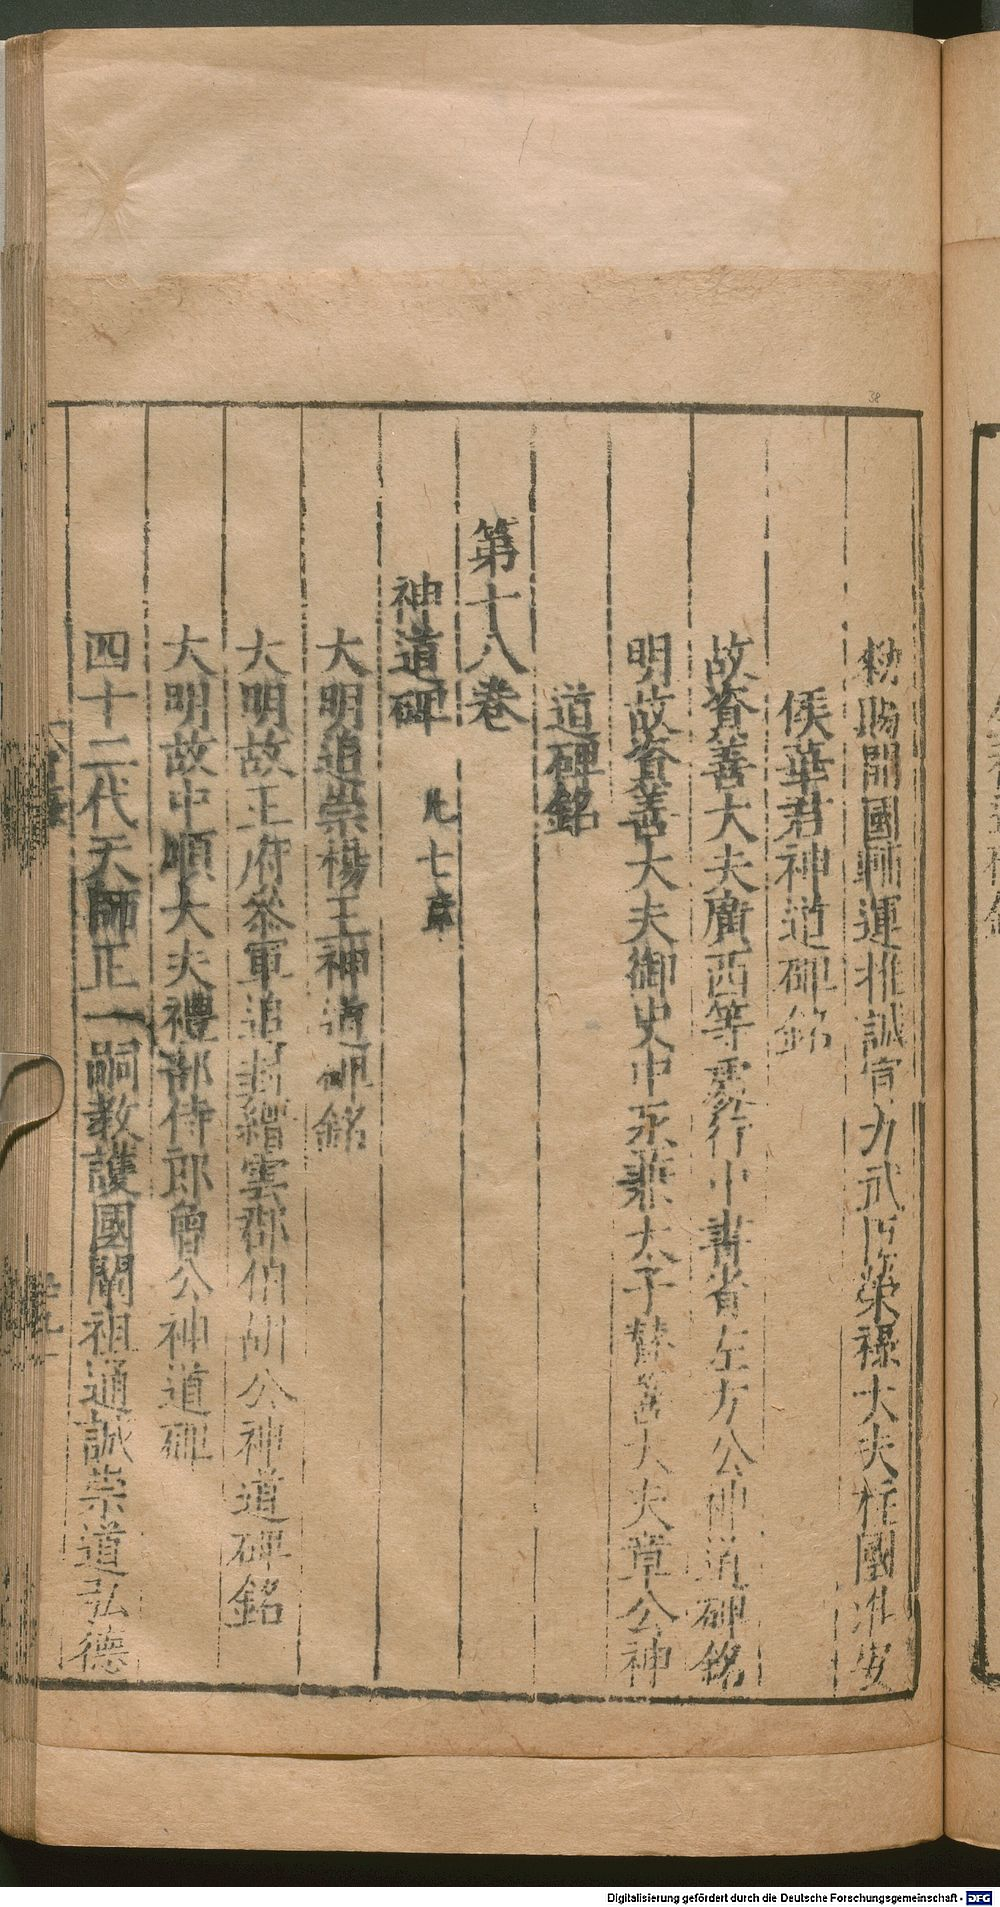 勑賜開國輔運推誠宣力武臣榮祿大夫柱國淮安
侯華君神道碑銘
故資善大夫廣西等處行中書省左丞方公神道碑銘
明故資善大夫御史中丞兼太子贊善大夫章公神
道碑銘
第十八卷
神道碑 凡七章
大明追崇楊王神道碑銘
大明故王府參軍追封縉雲郡伯胡公神道碑銘
大明故中順大夫禮部侍郎曾公神道碑
四十二代天師正一嗣教護國闡祖通誠崇道弘德
38
Digitalisierung gefördert durch die Deutsche Forschungsgemeinschaft - DFG